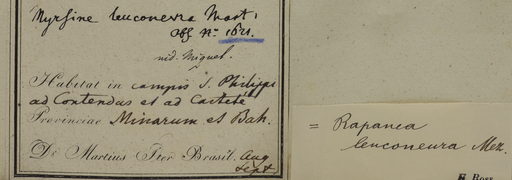 Myrsine leuconevra Mart.
Obs. No 1621.
vid. Miquel.
Habitat in campis S. Philippi
ad Contendas et ad Caetete
Provinciae Minarum et Bah.
Dr. Martius Iter Brasil. Aug
Sept
= Rapanea
leuconeura Mez.